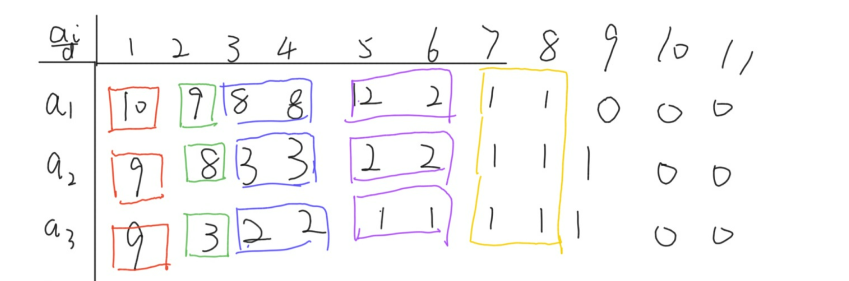 ai/d 1 2 3 4 5 6 7 8 9 10 11
a1 10 9 8 8 2 2 1 1 0 0 0
a2 9 8 3 3 2 2 1 1 1 0 0
a3 9 3 2 2 1 1 1 1 1 0 0